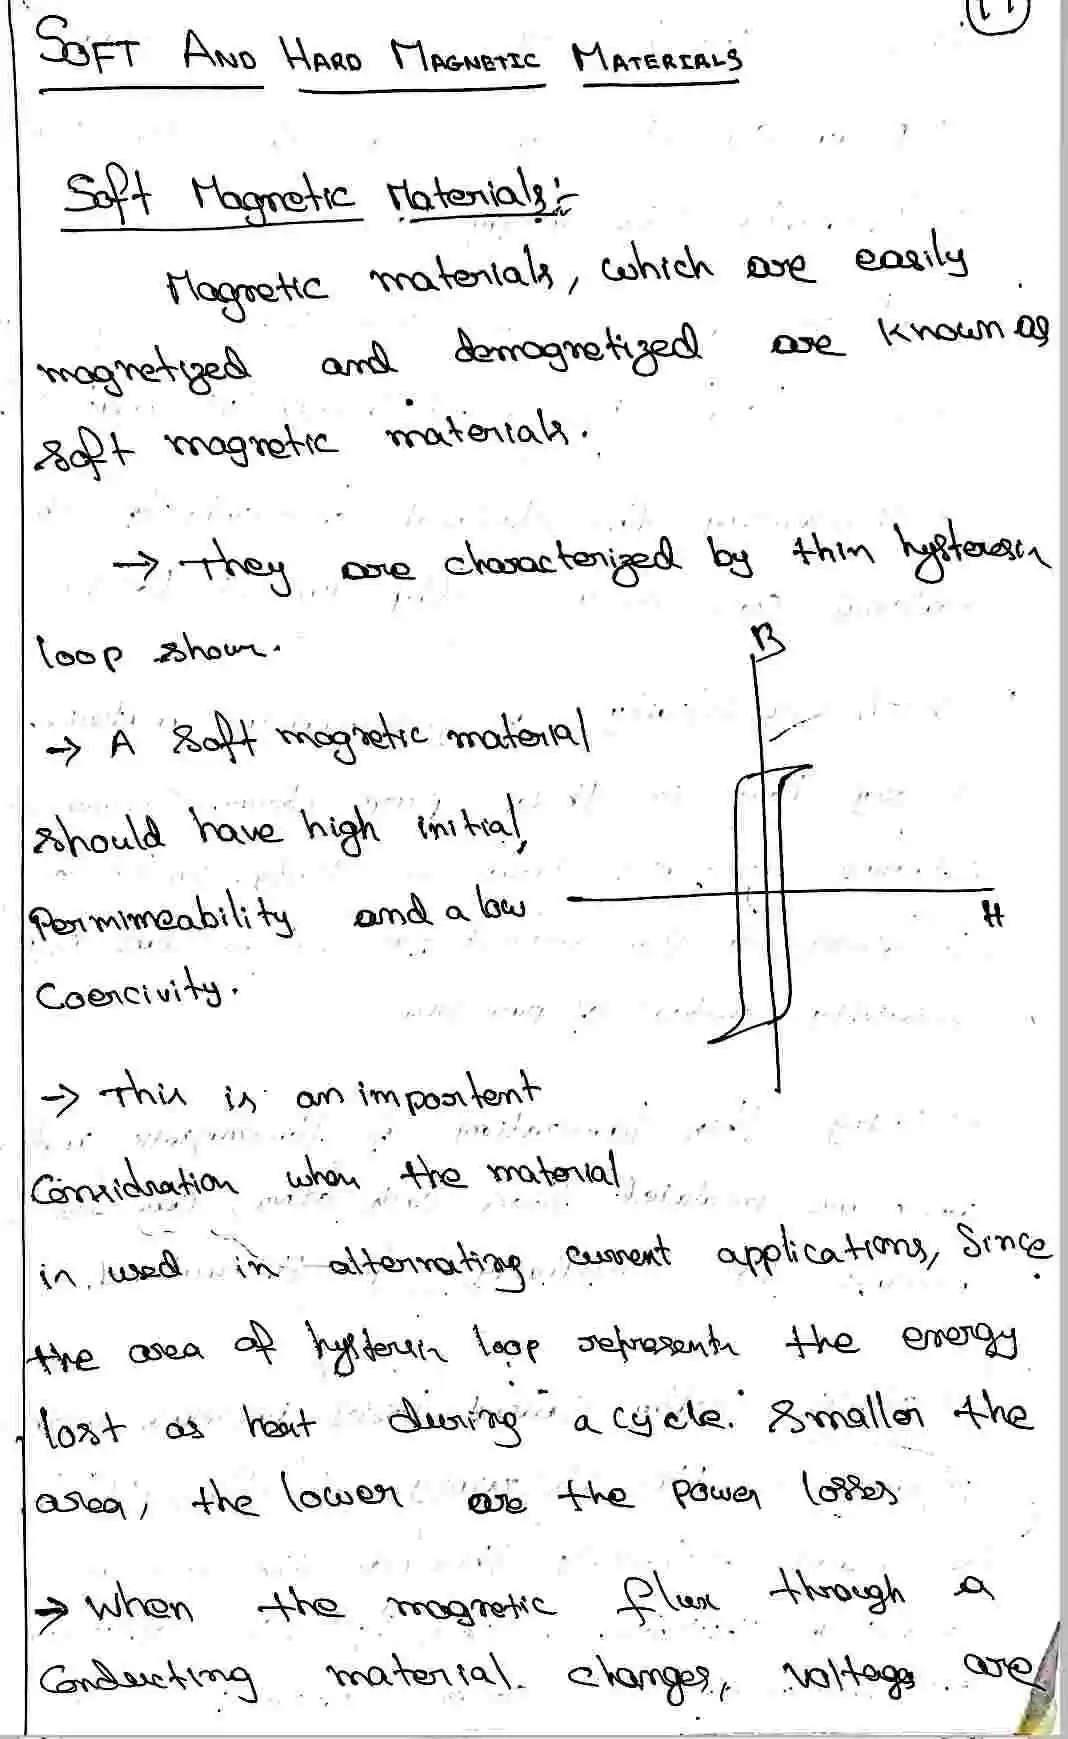 SOFT AND HARD MAGNETIC MATERIALS
Soft Magnetic Materials:-
Magnetic materials, which are easily
magnetized and demagnetized are known as
soft magnetic materials.
→ They are characterized by thin hysteresis
loop shown.
B
→ A soft magnetic material
should have high initial,
Permimeability and a low
H
Coercivity.
→ This is an importent
Considration when the material
is used in alternating current applications, Since
the area of hysteresis loop represents the energy
lost as heat during a cycle. Smaller the
area, the lower are the power losses
→ When the magnetic flux through a
Conducting material changes, voltage are